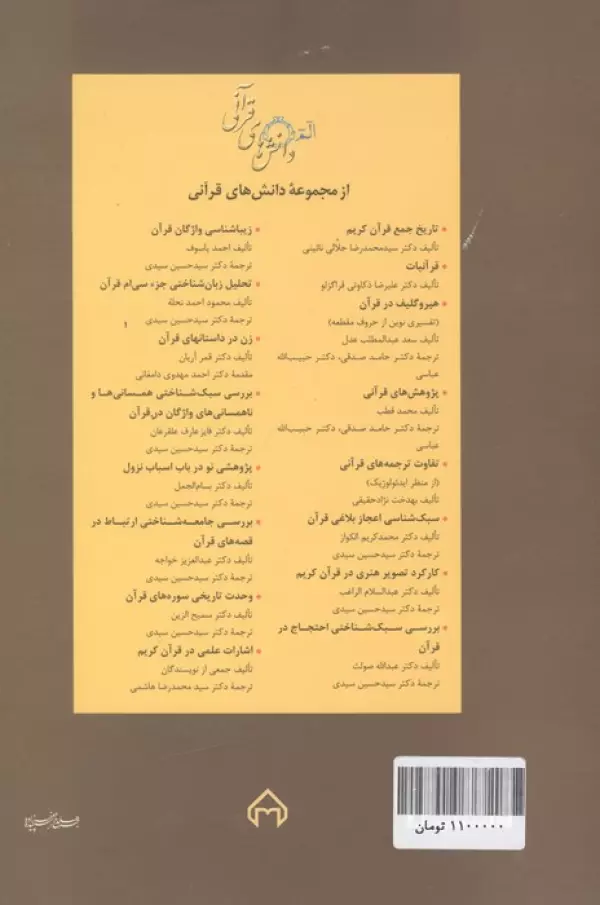 الم
دانش‌های قرآنی
از مجموعهٔ دانش‌های قرآنی
• تاریخ جمع قرآن کریم
تألیف دکتر سیدمحمدرضا جلّالی نائینی
• قرآنیات
تألیف دکتر علیرضا ذکاوتی قراگزلو
• هیروگلیف در قرآن
(تفسیری نوین از حروف مقطعه)
تألیف سعد عبدالمطلب عدل
ترجمهٔ دکتر حامد صدقی، دکتر حبیب‌الله
عباسی
• پژوهش‌های قرآنی
تألیف محمد قطب
ترجمهٔ دکتر حامد صدقی، دکتر حبیب‌الله
عباسی
• تفاوت ترجمه‌های قرآنی
(از منظر ایدئولوژیک)
تألیف بهدخت نژادحقیقی
• سبک‌شناسی اعجاز بلاغی قرآن
تألیف دکتر محمدکریم الکواز
ترجمهٔ دکتر سیدحسین سیدی
• کارکرد تصویر هنری در قرآن کریم
تألیف دکتر عبدالسلام الراغب
ترجمهٔ دکتر سیدحسین سیدی
• بررسی سبک‌شناختی احتجاج در
قرآن
تألیف دکتر عبدالله صولت
ترجمهٔ دکتر سیدحسین سیدی
• زیباشناسی واژگان قرآن
تألیف احمد یاسوف
ترجمهٔ دکتر سیدحسین سیدی
• تحلیل زبان‌شناختی جزء سی‌ام قرآن
تألیف محمود احمد نحلة
ترجمهٔ دکتر سیدحسین سیدی
• زن در داستانهای قرآن
تألیف دکتر قمر آریان
مقدمهٔ دکتر احمد مهدوی دامغانی
• بررسی سبک‌شناختی همسانی‌ها و
ناهمسانی‌های واژگان در قرآن
تألیف دکتر فایز عارف علقرعان
ترجمهٔ دکتر سیدحسین سیدی
• پژوهشی نو در باب اسباب نزول
تألیف دکتر بسام‌الجمل
ترجمهٔ دکتر سیدحسین سیدی
• بررسی جامعه‌شناختی ارتباط در
قصه‌های قرآن
تألیف دکتر عبدالعزیز خواجه
ترجمهٔ دکتر سیدحسین سیدی
• وحدت تاریخی سوره‌های قرآن
تألیف دکتر سمیح الزین
ترجمهٔ دکتر سیدحسین سیدی
• اشارات علمی در قرآن کریم
تألیف جمعی از نویسندگان
ترجمهٔ دکتر سید محمدرضا هاشمی
۱۱۰۰۰۰۰ تومان